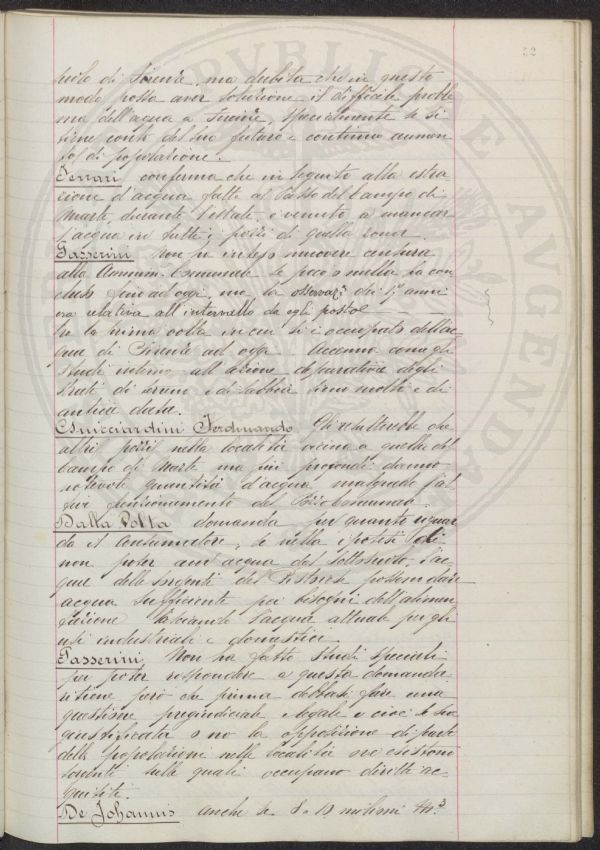 52
di Firenze, ma dubita che in questo
modo possa aver soluzione il difficile proble
ma dell'acqua a Firenze, specialmente se si
tiene conto del suo futuro e continuo aumen
to di popolazione.
Ferrari conferma che in seguito alla estra
zione d'acqua fatta al Pozzo del Campo di
Marte, durante l'estate, è venuta a mancar
l'acqua in tutti i pozzi di quella zona.
Passerini Non ha inteso muovere censura
alla Ammin. Comunale se poco o nulla ha con
cluso fino ad oggi, ma la osservaz. dei 17 anni
era relativa all'intervallo da egli posto
tra la prima volta in cui si è occupato dell'ac
qua di Firenze ad oggi. Accenna a
studi intorno all'azione depuratrice degli
strati di terreno e di sabbia sono molti e di
antica data.
Guicciardini Ferdinando che
altri pozzi nella località vicina a quella del
Campo di Marte ma più profondi danno
notevole quantità d'acqua malgrado l'at
tuale funzionamento del Pozzo Comunale.
Dalla Volta domanda per quanto riguar
da il consumatore, se nella ipotesi di
non poter aver acqua dal sottosuolo, l'ac
qua delle sorgenti del possono dare
acqua sufficiente pei bisogni dell'alimen
tazione lasciando l'acqua attuale per gli
usi industriali e domestici.
Passerini Non ha fatto studi speciali
per poter rispondere a questa domanda
ritiene però che prima debbasi fare una
questione pregiudiciale e legale e cioè se sia
giustificata o no la opposizione di parte
delle popolazioni nelle località ove esistono
sorgenti sulle quali occupano diritti ac
quisiti.
De Johannis anche le 8 o 10 milioni m.³